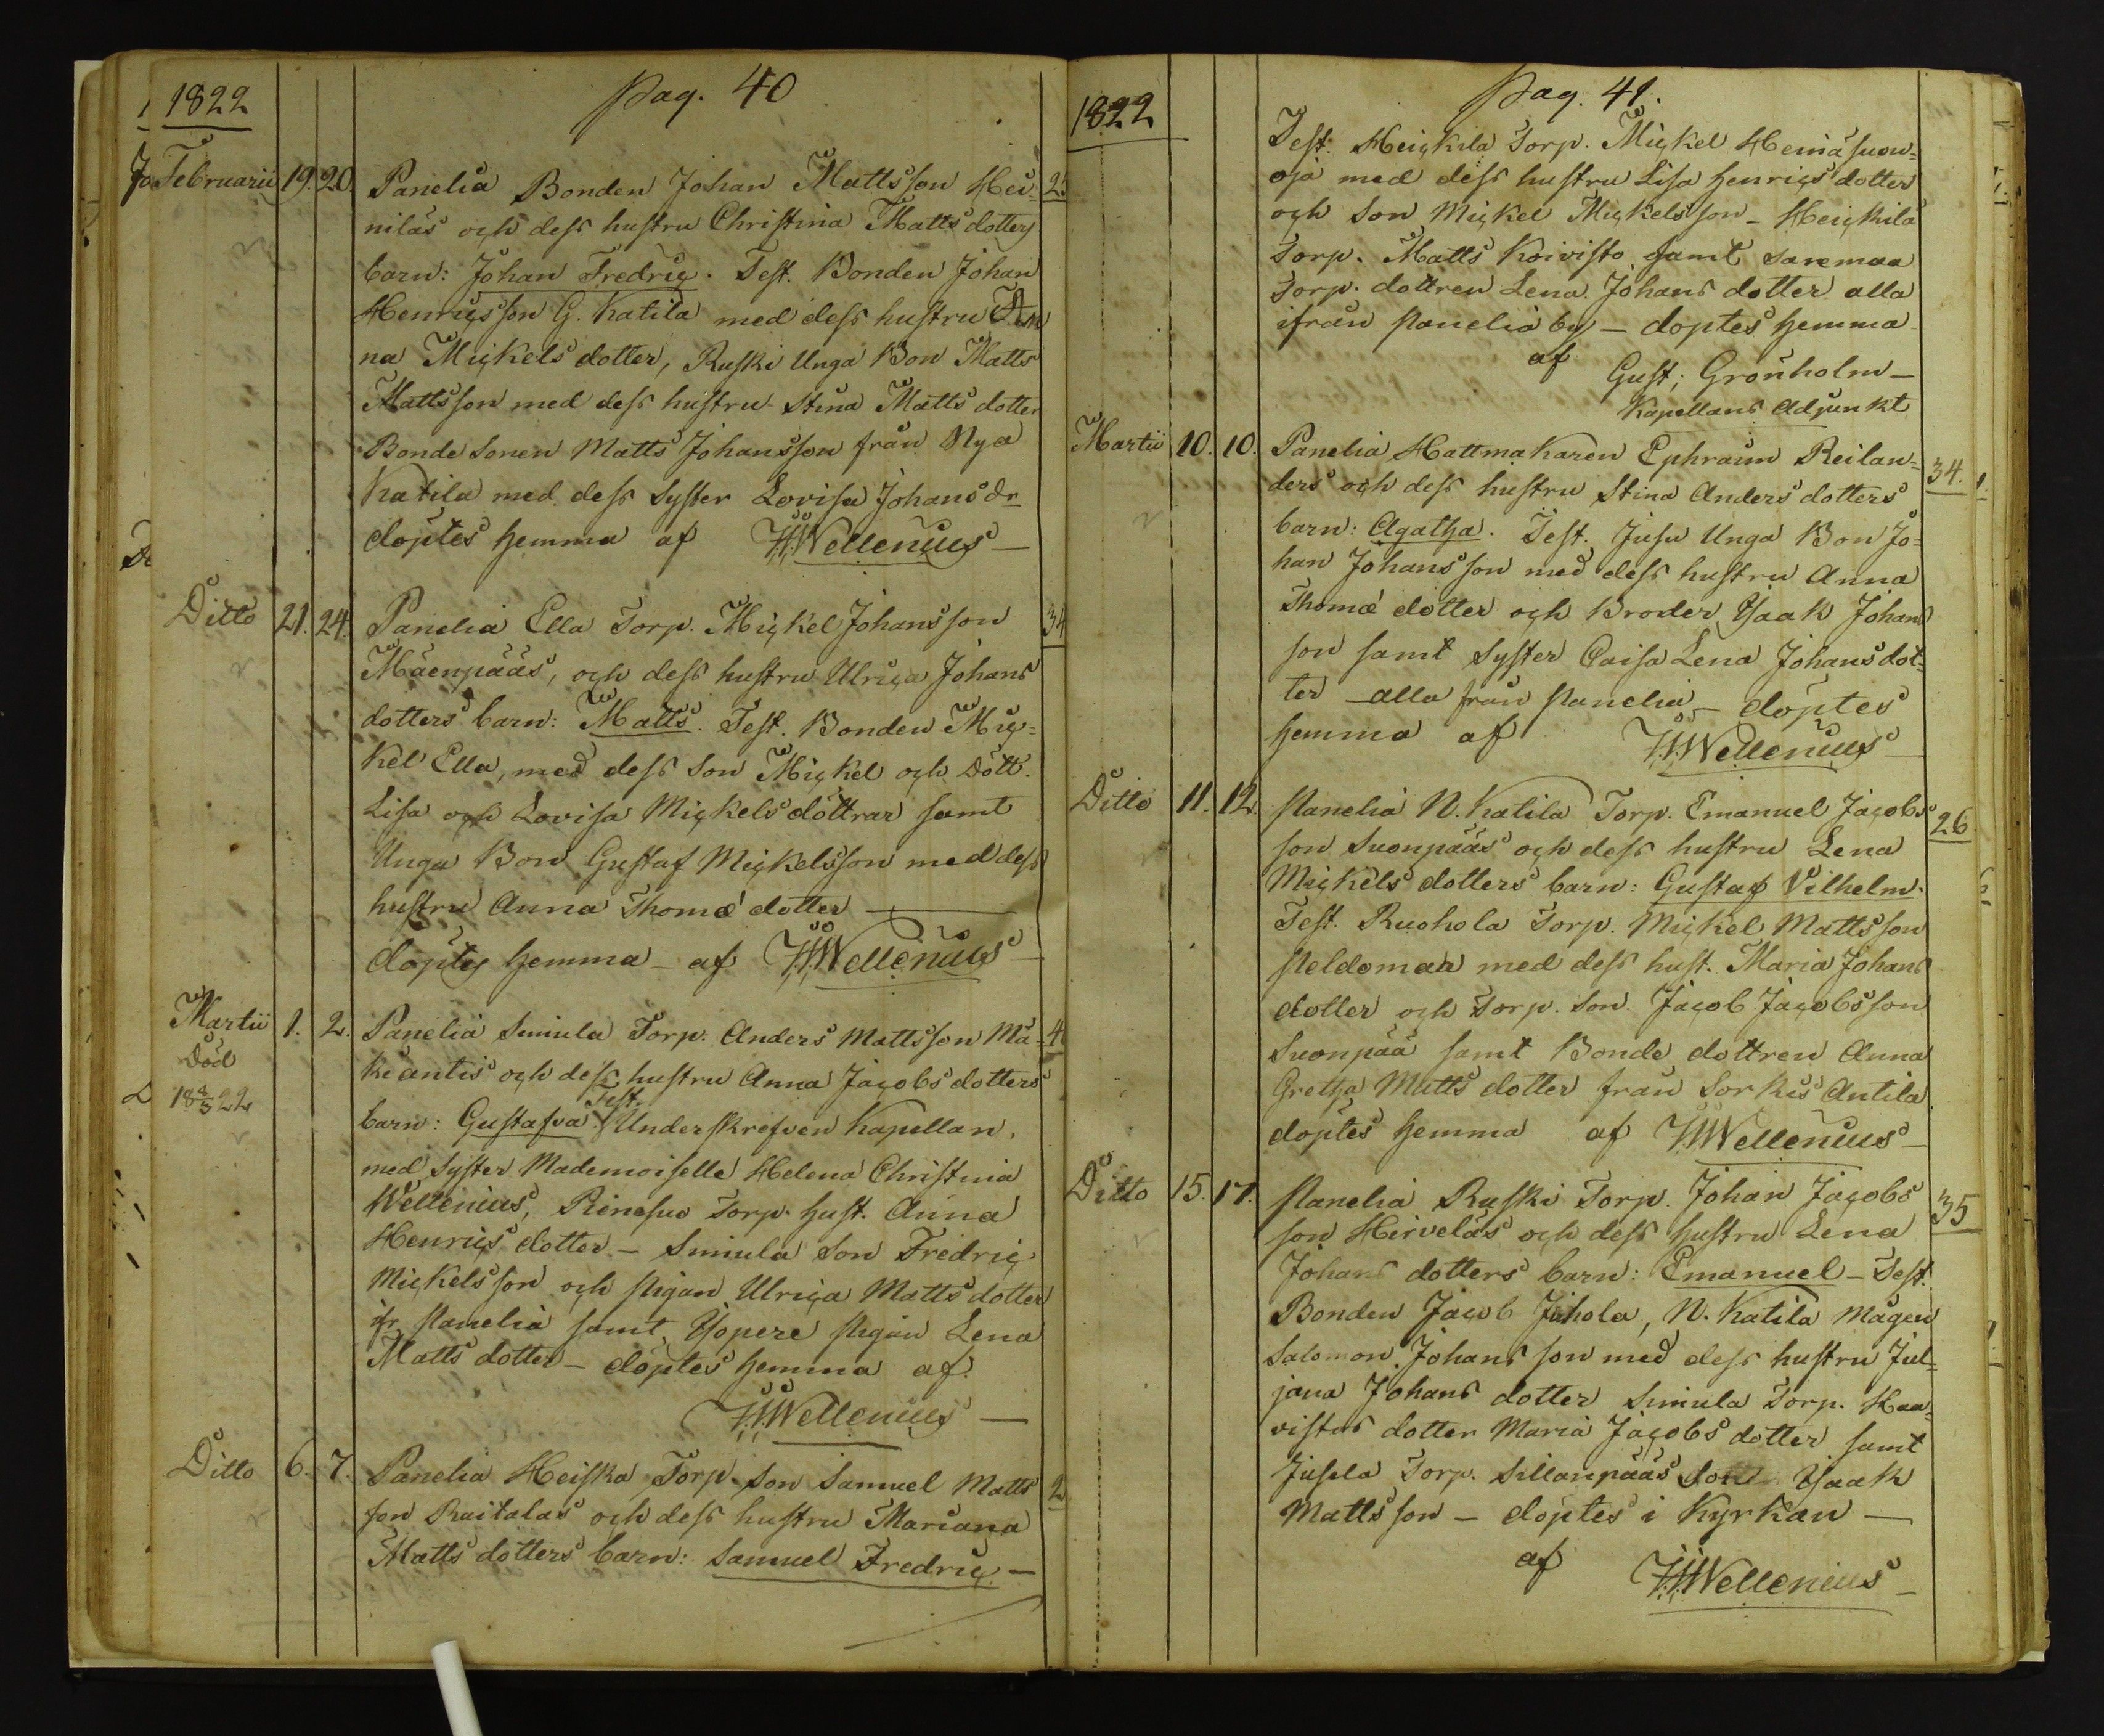 1822
Pag. 40
Februarii 19. 20. Panelia Bonden Johan Mattsson Hei- 2.
niläs och dess hustru Christina Mattsdotters
barn: Johan Fredric. Test. Bonden Johan
Henricsson G. Katila med dess hustru An
na Mickelsdotter, Ruski Unga Bon Matts
Mattsson med dess hustru Stina Mattsdotter
Bondesonen Matts Johansson från Nya
Katila med dess Syster Lovisa Johansdr
döptes hemma af Wellenius
Ditto 21. 24. Panelia Ella Torp. Mickel Johansson 34
Mäenpääs, och dess hustru Ulrica Johans
dotters barn: Matts. Test. Bonden Mic=
kel Ella, med dess Son Mickel och Dött.
Lisa och Lovisa Mickelsdöttrar samt
Unga Bon Gustaf Mickelsson med dess
hustru Anna Thomædotter
döptes hemma - af Wellenius
Martii 1. 2. Panelia Simula Torp. Anders Mattsson Mä- 4
Död
18 8/3 22
kiantis och dess hustru Anna Jacobsdotters
Test.
barn: Gustafva. Underskrefven Kapellan,
med Syster Mademoiselle Helena Christina
Wellenius, Torp. hust. Anna
Henricsdotter - Simula Son Fredric
Mickelsson och Pigan Ulrica Mattsdotter
ifr. Panelia samt Ylopere Pigan Lena
Mattsdotter - döptes hemma af
Wellenius
Ditto 6. 7. Panelia Heiska Torp. Son Samuel Matts 2
son Raitalas och dess hustru Mariana
Mattsdotters barn: Samuel Fredric -
Pag. 41.
1822
Test. Heickilä Torp. Mickel Heinäsuon-
oja med dess hustru Lisa Henricsdotter
och Son Mickel Mickelsson - Heickilä
Torp. Matts Koivisto samt Saremaa
Torp. dottren Lena Johansdotter alla
ifrån Panelia by - döptes hemma
af
Gust; Grönholm -
Kapellans Adjunkt
Martii 10. 10. Panelia Hattmakaren Ephraim Reilan= 34.
ders och dess hustru Stina Andersdotters
barn: Agatha. Test. Jusu Unga Bon Jo=
han Johansson med dess hustru Anna
Thomædotter och Broder Isaak Johans
son samt Syster Caisa Lena Johansdot-
ter alla från Panelia - döptes
hemma af Wellenius
Ditto 11. 12. Panelia N. Katila Torp. Emanuel Jacobs 26
son Suonpääs och dess hustru Lena
Mickelsdotters barn: Gustaf Vilhelm.
Test. Ruohola Torp. Mickel Mattsson
Peldomaa med dess hust. Maria Johans
dotter och Torp. Son. Jacob Jacobsson
Suonpää samt Bonde dottren Anna
Gretha Mattsdotter från Sorkis Antila
döptes hemma af Wellenius
Ditto 15. 17. Panelia Ruski Torp. Johan Jacobs 35
son Hirveläs och dess hustru Lena
Johansdotters barn: Emanuel - Test.
Bonden Jacob Juhola, N. Katila Mågen
Salomon Johansson med dess hustru Jul=
jana Johansdotter Simula Torp. Haa=
vistos dotter Maria Jacobsdotter samt
Jusela Torp. Sillanpääs Son Isaak
Mattsson - döptes i Kyrkan -
af Wellenius